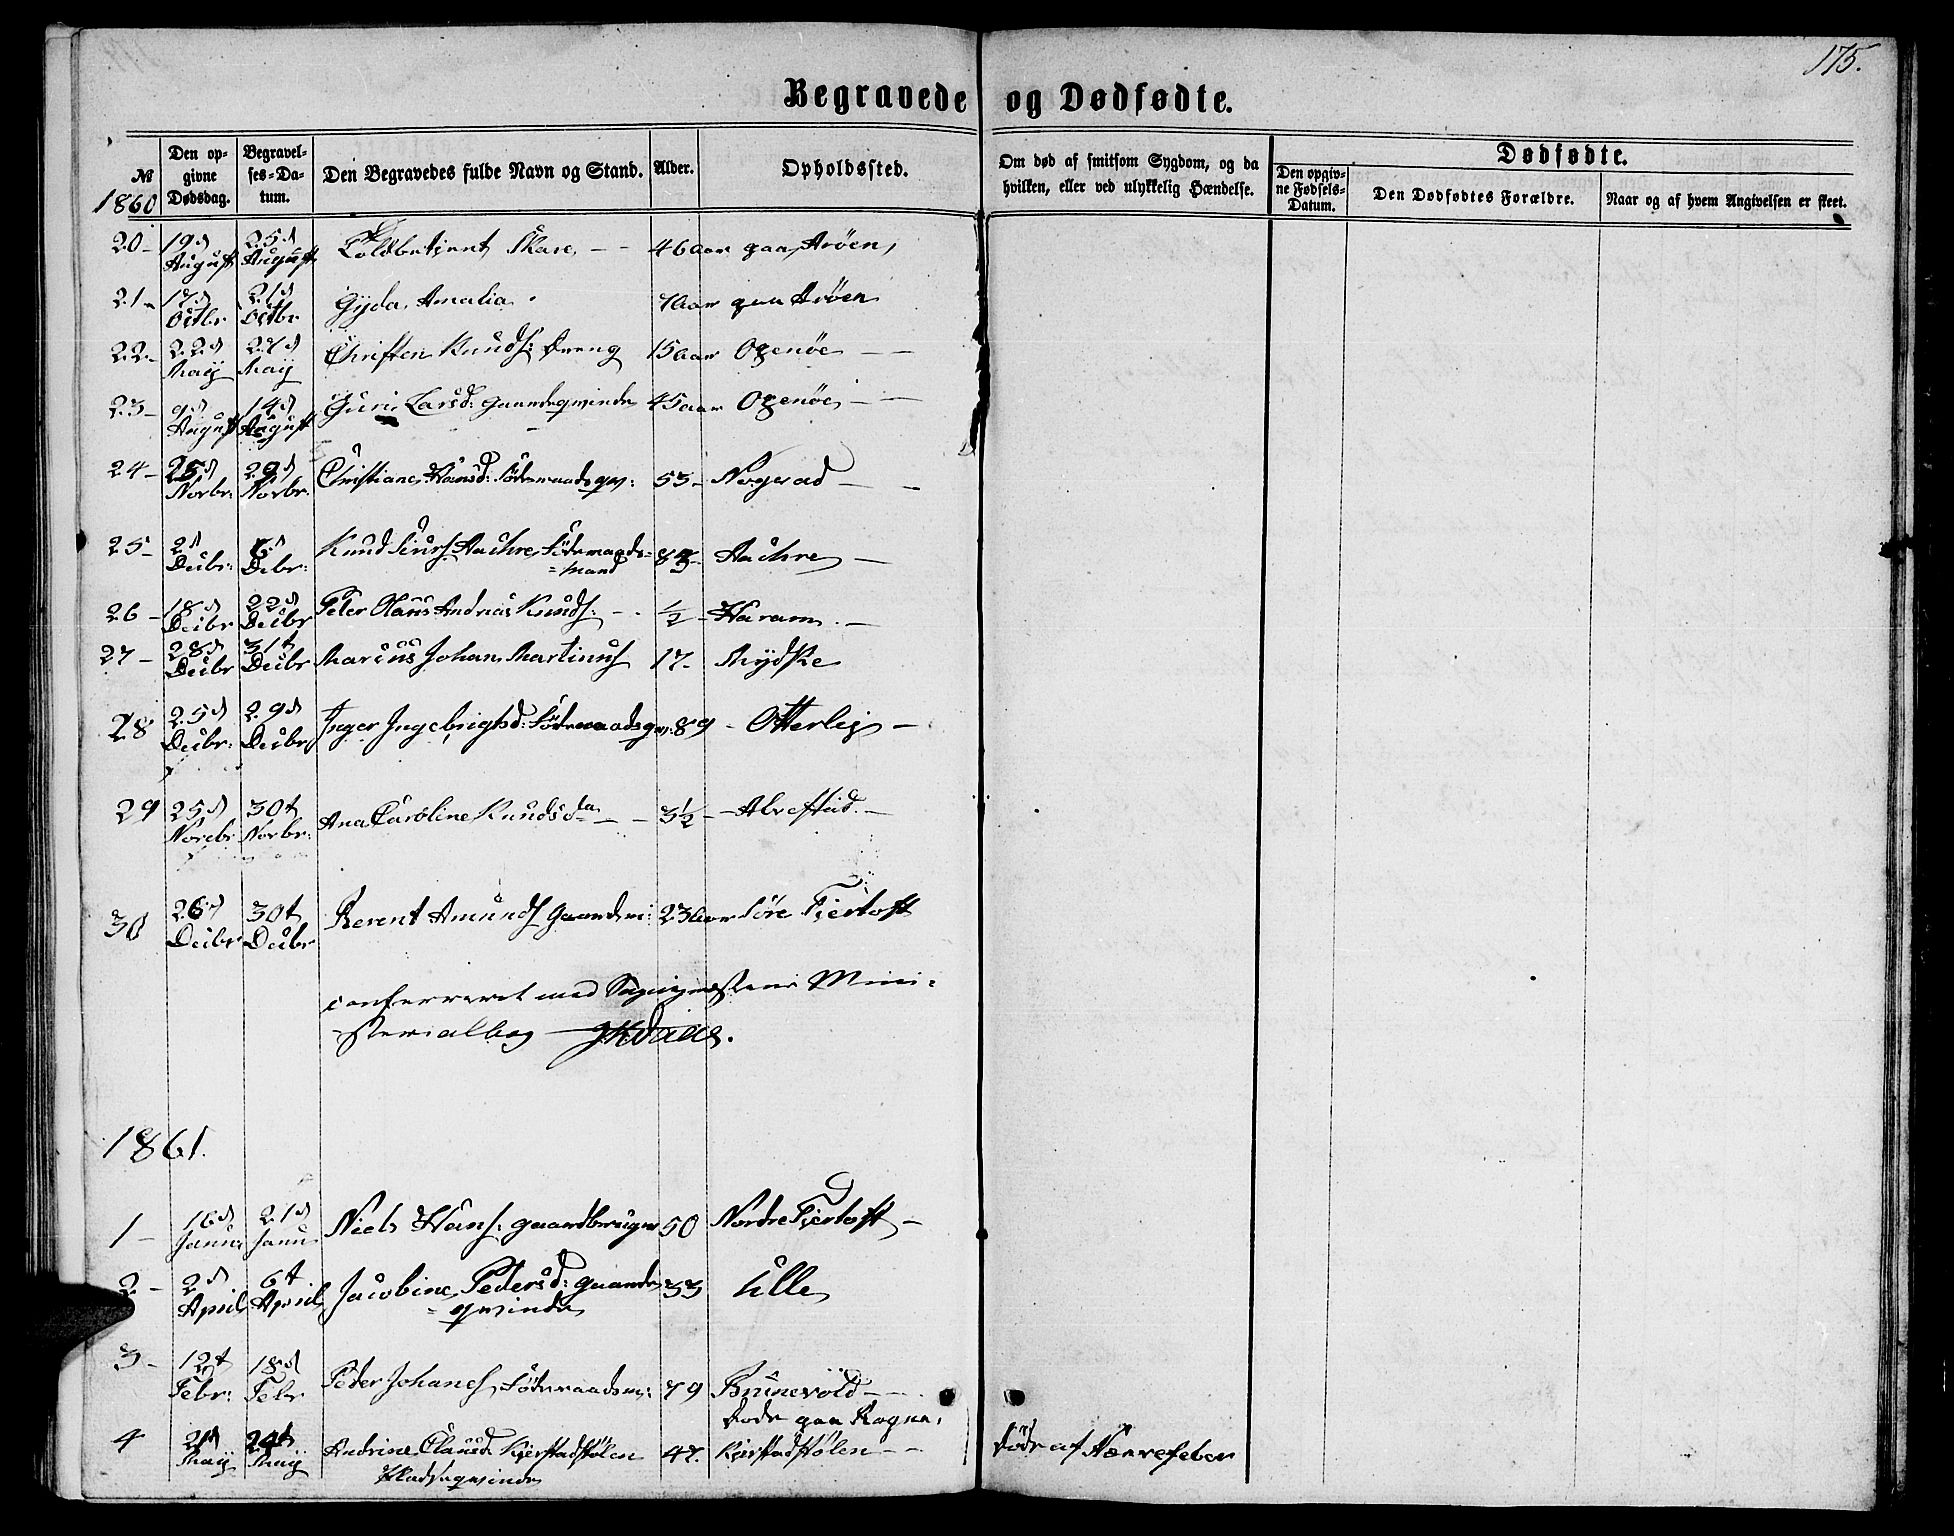 175.
Begravede og Dødfødte.
№ 1860
Den opgivne Dødsdag.
Begravelses-Datum.
Den Begravedes fulde Navn og Stand.
Alder.
Opholdssted.
Om død af smitsom Sygdom, og da hvilken, eller ved ulykkelig Hændelse.
Dødfødte.
Den opgivne Fødsels-Datum.
Den Dødfødtes Forældre.
Naar og af hvem Angivelsen er skeet.
20- 19d August 25d August Toldbetjent Skare, - - 46 aar paa Arøen,
21- 17d Octbr 21d Octbr Gyda Amalia. 7 aar paa Arøen
22- 22d Maij 27d Maij Christen Knuds: Dreng 15 aar Ogenøe - -
23- 9d August 14d August Guri Larsd: Gaardsqvinde 45 aar Ogenøe - -
24- 25d Novbr: 29d Novbr. Christiane Hansd: Föderaadsqv: 53- Nogvad - -
25- 2d Decbr: 6d Decbr: Knud Siurs. Aachre, Föderaads=
=mand 83- Aachre -
26- 18d Decbr 22d Decbr Peter Olaus Andreas Knuds: - - 1/2 - Haram. -
27- 28d Decbr 31t Decbr Marcus Johan Martinus 17. Mydske
28 25d Decbr: 29d Decbr Inger Ingebrigtsd: Föderaadsqv: 89 - Otterlej -
29 25d Novebr. 30t Novbr: Ana Caroline Knudsda - - 3 1/2 - Alvestad. -
30 26d Decbr 30t Decbr Berent Amunds Gaardm: 23 aar Söre Fjertoft
conferreret med Sognepræstens Mini=
sterialbog -
1861.
1- 16d Janu: 21d Janu: Niels Hans: gaardbruger 50 Nordre Fjertoft -
2- 2d April 6t April Jacobine Pedersd: gaards
=qvinde 33 Ulle
3- 12t Febr: 18d Febr Peder Johanes Föderaadsm: 79 Brunevold - -
4 24t Maij Andrine Clausd. Kjerstadstølen
Pladsqvinde 47. Døde paa Rogne,
Kjerstadstølen - - Døde af Nervefeber